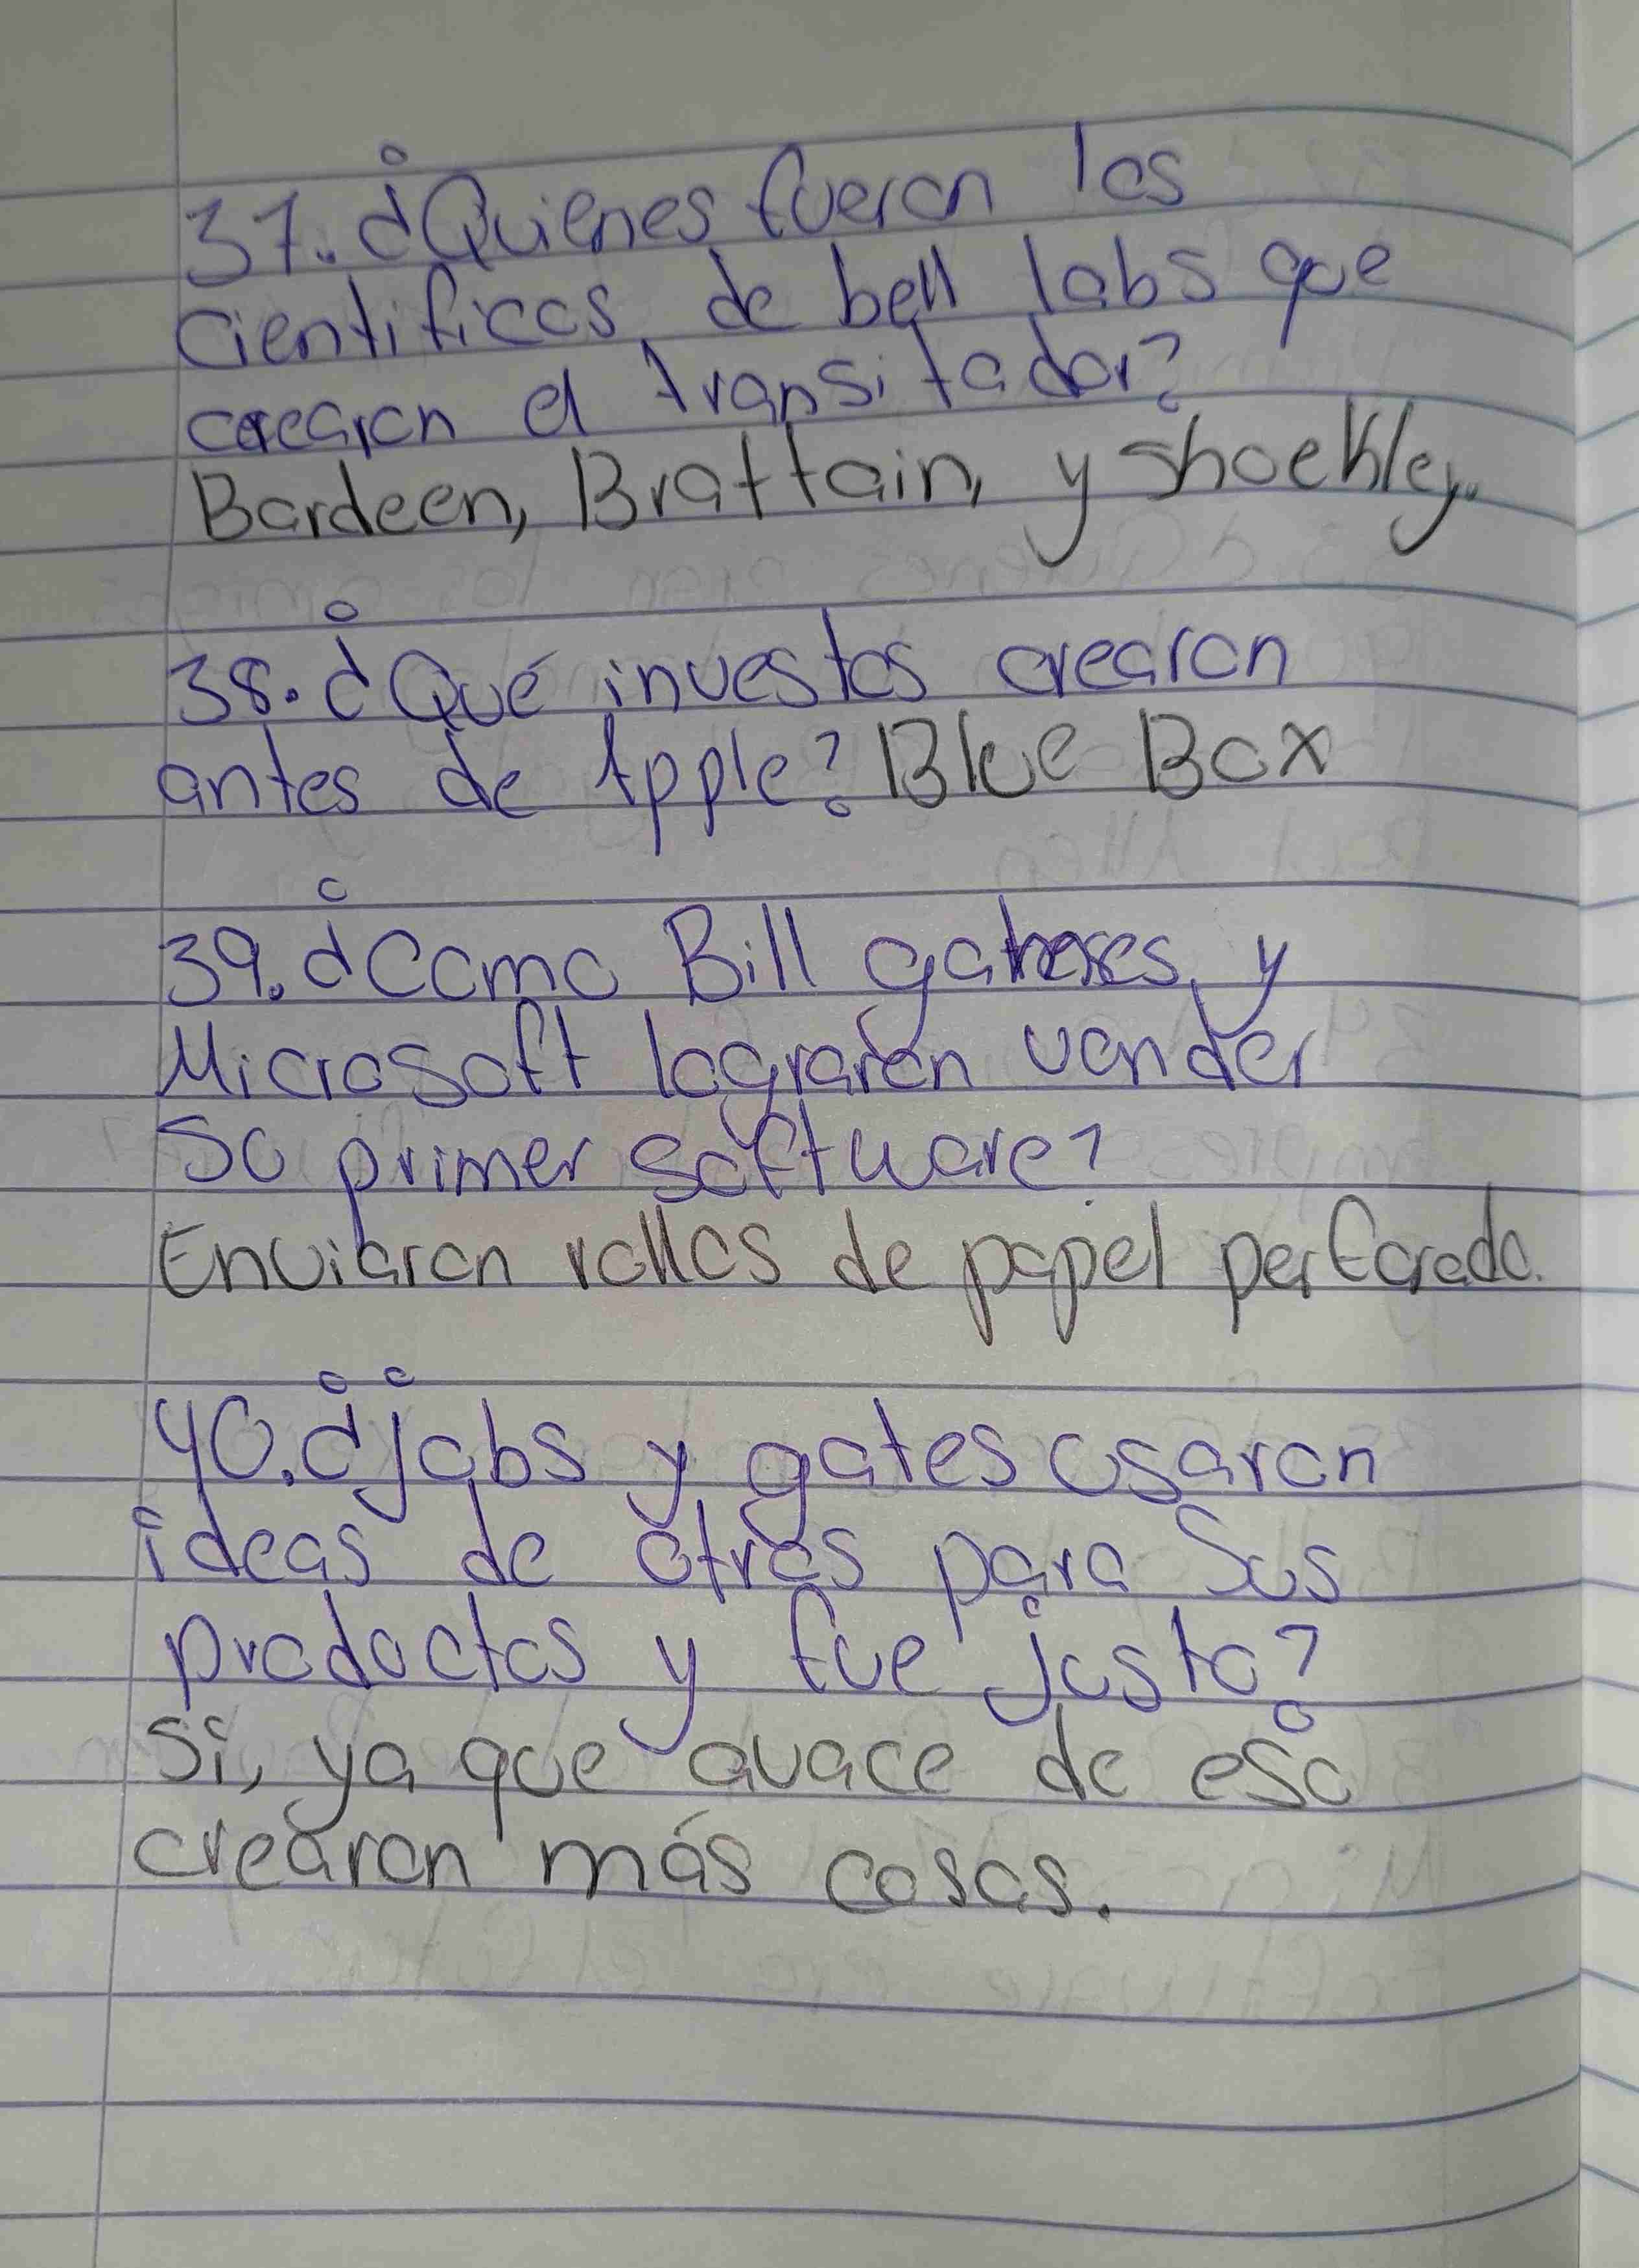 37. ¿Quienes fueron los
cientificos de bell labs que
crearon el transitador?
Bardeen, Brattain, y shoekley.
38. ¿Qué inuestos crearon
antes de Apple? Blue Box
39. ¿Como Bill gateses y
Microsoft lograron vender
So primer software?
Enviaron rollos de papel perforado.
40. ¿jobs y gates usaron
ideas de otros para Sus
productos y fue justo?
Si, ya que avace de eso
crearon más cosas.